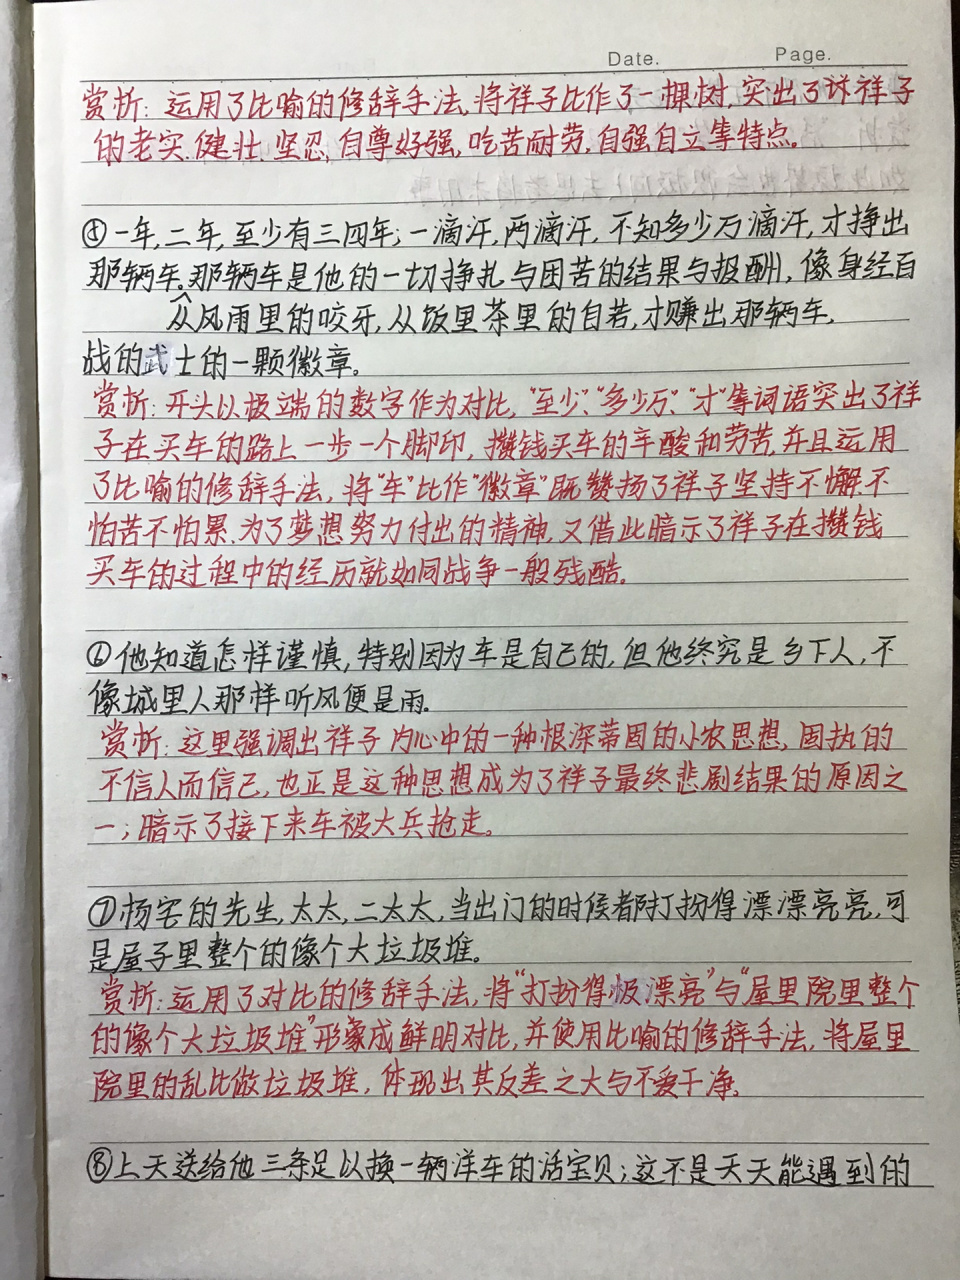 Date. Page.
赏析：运用了比喻的修辞手法，将祥子比作了一棵树，突出了详祥子
的老实、健壮、坚忍、自尊好强，吃苦耐劳，自强自立等特点。
⑤一年，二年，至少有三四年；一滴汗，两滴汗，不知多少万滴汗，才挣出
那辆车。那辆车是他的一切挣扎与困苦的结果与报酬，像身经百
从风雨里的咬牙，从饭里茶里的自若，才赚出那辆车。
战的武士的一颗徽章。
赏析：开头以极端的数字作为对比，“至少”、“多少万”、“才”等词语突出了祥
子在买车的路上一步一个脚印，攒钱买车的辛酸和劳苦，并且运用
了比喻的修辞手法，将“车”比作“徽章”既赞扬了祥子坚持不懈、不
怕苦不怕累、为了梦想努力付出的精神，又借此暗示了祥子在攒钱
买车的过程中的经历就如同战争一般残酷。
⑥他知道怎样谨慎，特别因为车是自己的，但他终究是乡下人，不
像城里人那样听风便是雨。
赏析：这里强调出祥子内心中的一种根深蒂固的小农思想，固执的
不信人而信己，也正是这种思想成为了祥子最终悲剧结果的原因之
一；暗示了接下来车被大兵抢走。
⑦杨宅的先生，太太，二太太，当出门的时候都打扮得漂漂亮亮，可
是屋子里整个的像个大垃圾堆。
赏析：运用了对比的修辞手法，将“打扮得极漂亮”与“屋里院里整个
的像个大垃圾堆”形象成鲜明对比，并使用比喻的修辞手法，将屋里
院里的乱比做垃圾堆，体现出其反差之大与不爱干净。
⑧上天送给他三条足以换一辆洋车的活宝贝；这不是天天能遇到的